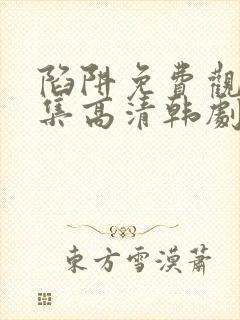 陷阱免費觀
集高清韩劇
東方雪漠蕭